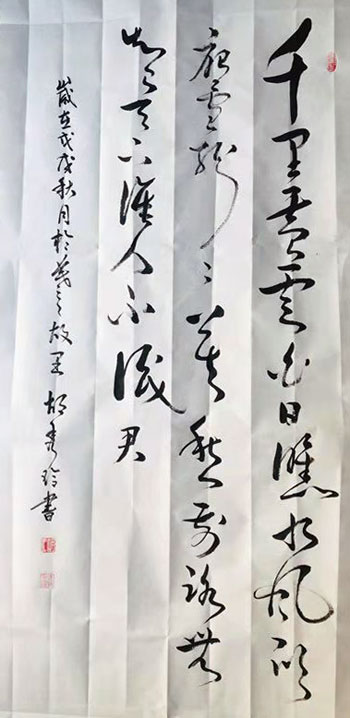 千里黄雲白日曛北風吹
雁雪紛〻莫愁前路無
知己天下誰人不識君
歲在戊戌秋月於羲之故里 胡秀玲書